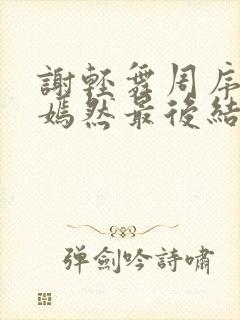 謝輕舞周序
嫣然最後結
弹劍吟詩嘯